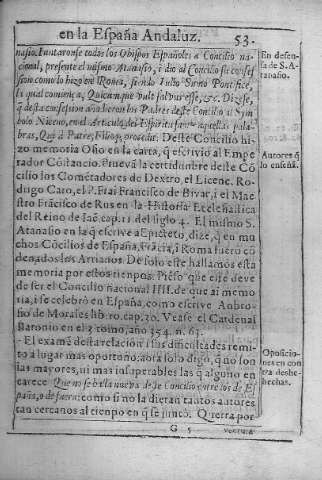 en la España Andaluz. 53.
nasio. Iuntaronse todos los Obispos Españoles a Concilio na-
cional, presente el mismo Atanasio, i dio al Concilio su confes-
sion como lo hizo en Roma, siendo Iulio Sumo Pontifice,
la qual comiença, Quicunque vult salvus esse, &c. Dizese,
q̃ desta confession añadieron los Padres deste Concilio al Sym
bolo Niceno, en el Articulo del Espiritu santo aquellas pala-
bras, Qui à Patre, Filioq; procedit. Deste Concilio hi-
zo memoria Osio en la carta, q̃ escrivió al Empe-
rador Cõstancio. Pruevã la certidumbre deste Cõ
cilio los Cometadores de Dextro, el Licenc. Ro-
drigo Caro, el P. Frai Francisco de Bivar, i el Mae
stro Frãcisco de Rus en la Historia Ecclesiastica
del Reino de Iaẽ cap. 11. del siglo 4. El mismo S.
Atanasio en la q̃ escrive a Epicteto, dize, q̃ en mu
chos Cõcilios de España, Frãcia, i Roma fuerõ cõ
denados los Arrianos. De solo este hallamos esta
memoria por estos tienpos. Piẽso que este deve
de ser el Concilio nacional IIII. de que ai memo
ria, i se celebrò en España, como escrive Anbro
sio de Morales libro. cap. 30. Vease el Cardenal
Baronio en el 3 tomo, año 354. n. 63.
El examẽ desta relació i sus dificultades remi-
to a lugar mas oportuno. aora solo digo, q̃ no son
las mayores, ni mas insuperables las q̃ alguno en
carece Que no se halla nueva de de Concilio entre los de Es
paña, o de fuera: como si no la dieran tantos autores
tan cercanos al tienpo en q̃ se juntó. Querra por
G 5
ventura
En defen-
sa de S. A-
tanasio.
Autores q̃
lo enseñã.
Oposicio-
nes en con
tra deshe-
chas.